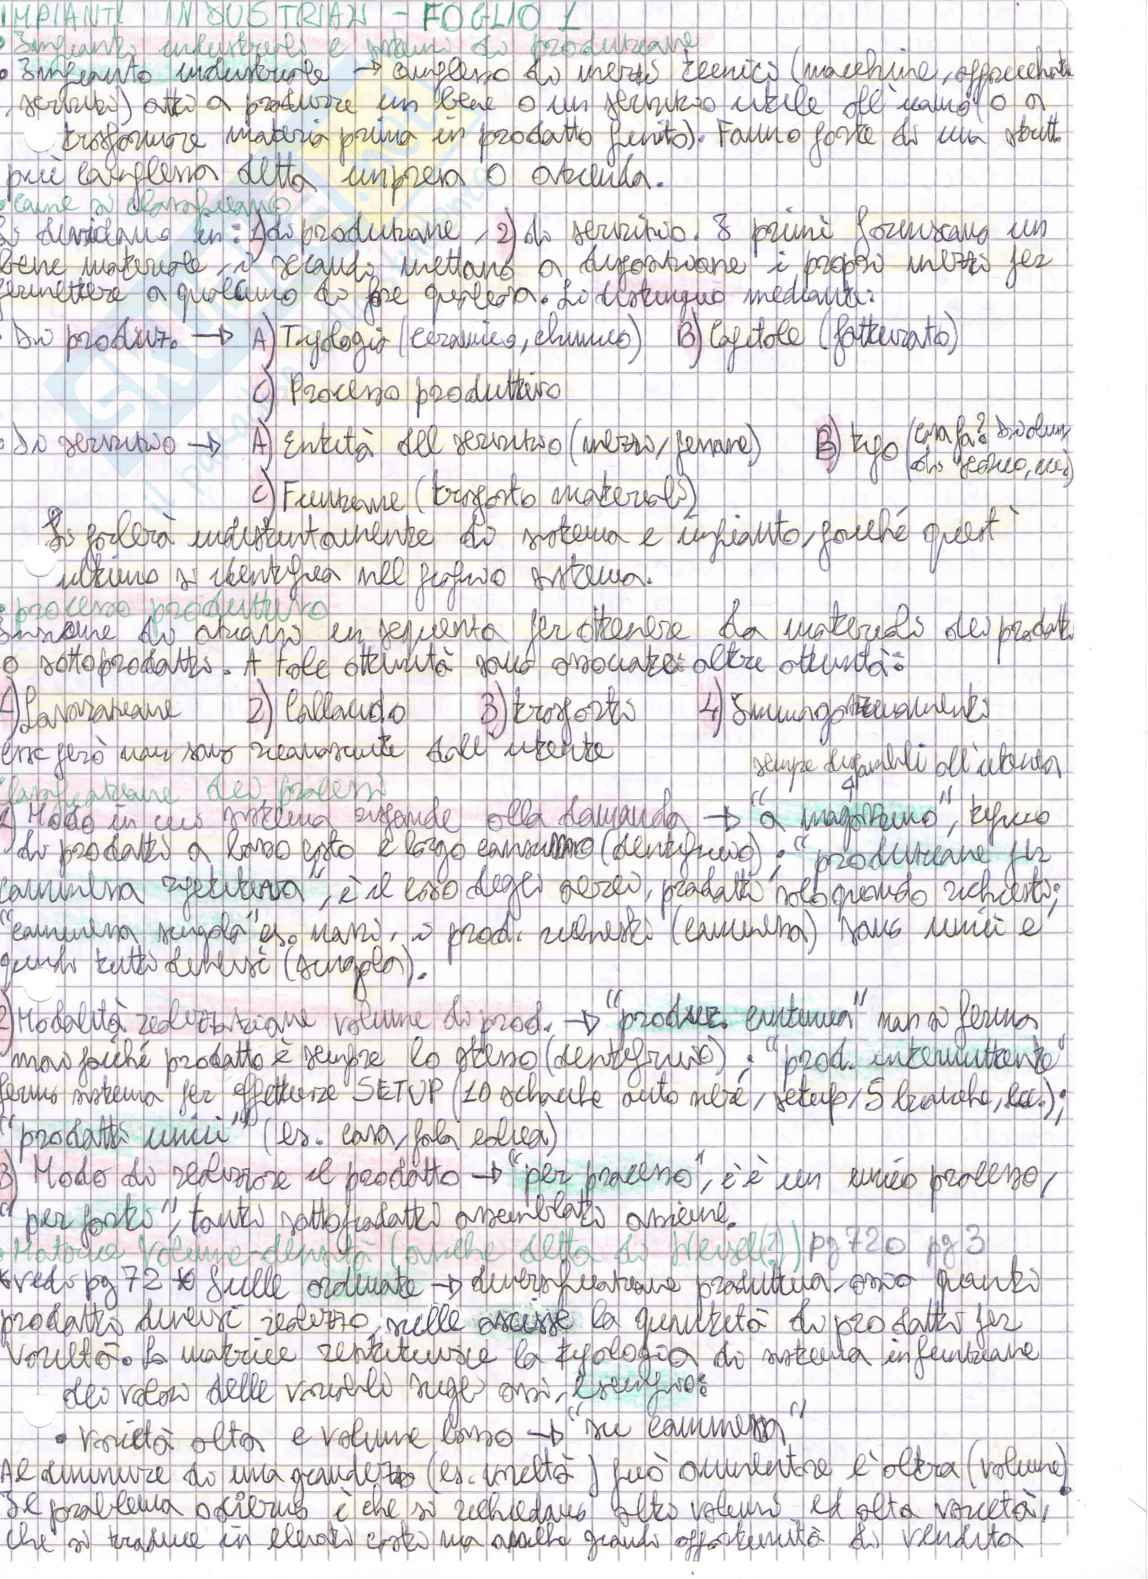 IMPIANTI INDUSTRIALI - FOGLIO 1
• Impianti industriali e sistemi di produzione
• Impianto industriale → complesso di mezzi tecnici (macchine, apparecchiat.
, servizi) atti a produrre un bene o un servizio utile all'uomo (o a
trasformare materia prima in prodotto finito). Fanno parte di una strutt.
più complessa detta impresa o azienda.
• come si classificano
Si dividono in: 1) di produzione, 2) di servizio. I primi forniscono un
bene materiale, i secondi mettono a disposizione i propri mezzi per
permettere a qualcuno di fare qualcosa. Si distinguono mediante:
• Di produz. → A) Tipologia (ceramica, chimica) B) Capitale (fatturato)
C) Processo produttivo
• Di servizio → A) Entità del servizio (mezzi, persone) B) tipo (cosa fa?
C) Funzione (trasporto materiali)
Si parlerà indistintamente di sistema e impianto, poiché quest'
ultimo si identifica nel proprio sistema.
• processo produttivo
Insieme di azioni in sequenza per ottenere da materiali dei prodotti
o sottoprodotti. A tale attività sono associate altre attività:
1) Lavorazione 2) Collaudo 3) trasporto 4) Immagazzinamento
esse però non sono riconosciute dall'utente
sempre disponibili all'utenza
Classificazione dei processi
1) Modo in cui sistema risponde alla domanda → "a magazzino", tipico
di prodotti a basso costo e largo consumo (dentifricio); "produzione per
commessa ripetitiva", è il caso degli aerei, prodotti solo quando richiesti;
"commessa singola" es. navi, i prod. richiesti (commessa) sono unici e
quindi tutti diversi (singola).
2) Modalità realizzazione volume di prod. → "produz. continua" non si ferma
mai poiché prodotto è sempre lo stesso (dentifricio); "prod. intermittente"
fermo sistema per effettuare SETUP (10 scocche auto nere, setup, 5 bianche, ecc.);
"prodotti unici" (es. casa, pala eolica)
3) Modo di realizzare il prodotto → "per processo", c'è un unico processo,
"per parti", tanti sottoprodotti assemblati assieme.
• Matrice Volume-densità (anche detta di Wevel(?)) pg 720 pg 3
* vedi pg 72 * Sulle ordinate → diversificazione produttiva, ossia quanti
prodotti diversi realizzo, sulle ascisse la quantità di prodotti per
varietà. La matrice restituisce la tipologia di sistema in funzione
dei valori delle variabili sugli assi, esempio:
• varietà alta e volume basso → "su commessa"
Al diminuire di una grandezza (es. varietà) può aumentare l'altra (volume).
Il problema odierno è che si richiedono alti volumi ed alta varietà,
che si traduce in elevati costi ma anche grandi opportunità di vendita